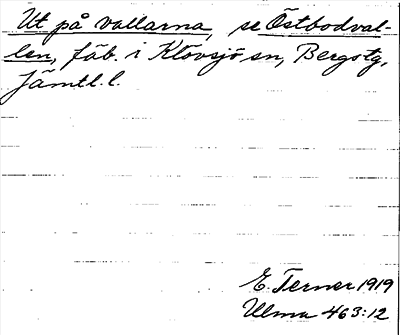 Ut på vallarna, se Östbodval-
len, fäb. i Klövsjö sn, Bergs tg,
Jämtl. l.
E. Terner 1919
Ulma 463:12